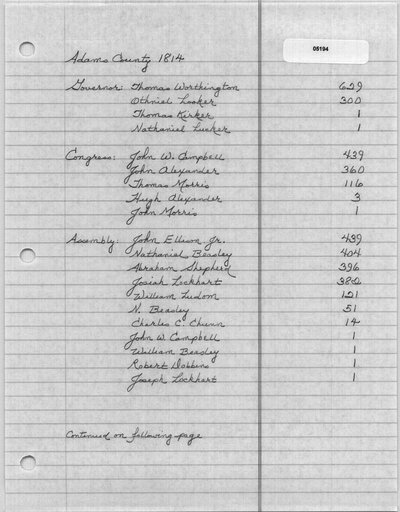 05194
Adams County 1814
Governor: Thomas Worthington 629
Othniel Looker 300
Thomas Kirker 1
Nathaniel Lucker 1
Congress: John W. Campbell 439
John Alexander 360
Thomas Morris 116
Hugh Alexander 3
John Morris 1
Assembly: John Ellison Jr. 439
Nathanial Beasley 404
Abraham Shepherd 396
Josiah Lockhart 382
William Ludom 121
N. Beasley 51
Charles C. Chunn 14
John W. Campbell 1
William Beasley 1
Robert Dobbins 1
Joseph Lockhart 1
Continued on following page